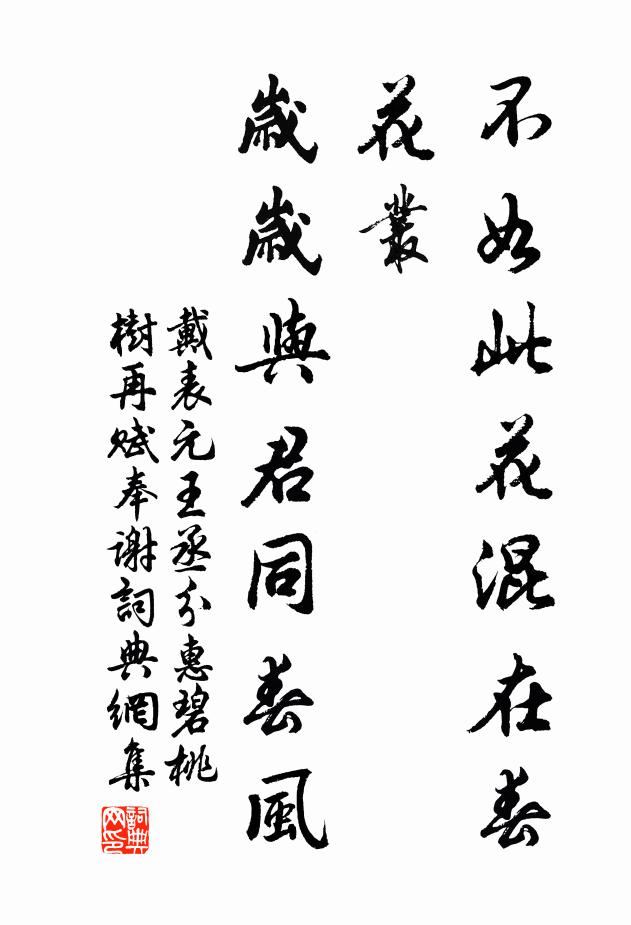 不如此花混在春
花叢
歲歲與君同春風
戴表元王丞分惠碧桃
樹再賦奉謝詞典網集
詞典
网印